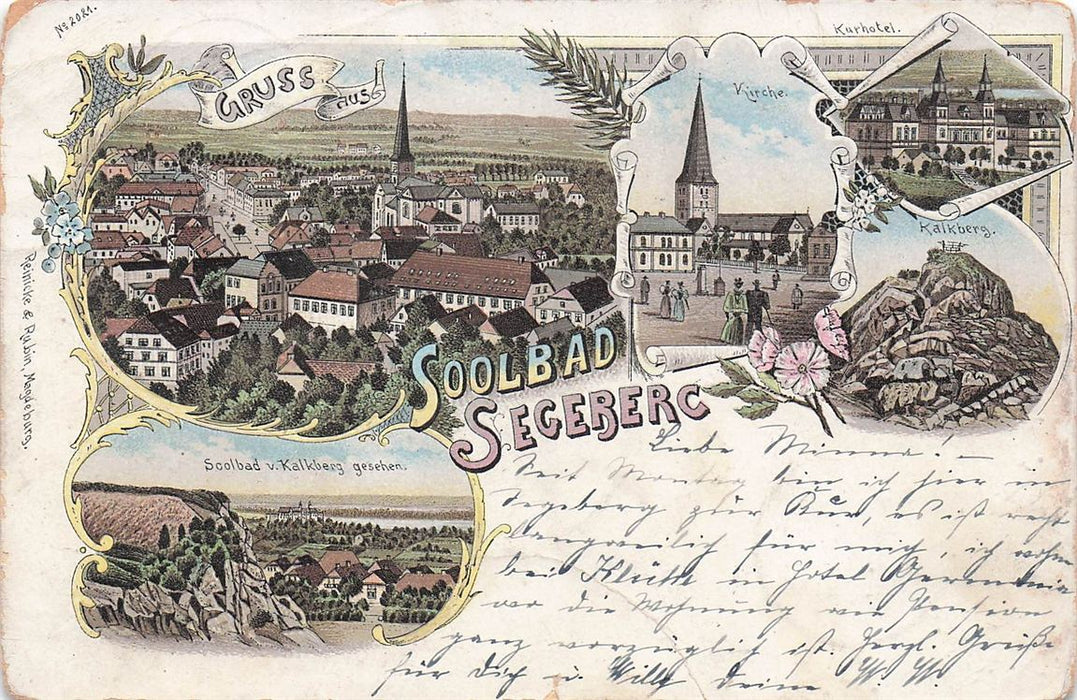 No 2021.
GRUSS
AUS
Kirche.
Kurhotel.
Kalkberg.
SOOLBAD
SEGEBERG
Soolbad v. Kalkberg gesehen.
Reinicke & Rubin, Magdeburg.
Liebe Minna!–
Seit Montag bin ich hier in
Segeberg zur Kur, es ist recht
langweilig für mich, ich wohne
bei Klüth in Hotel Germania
wo die Wohnung wie Pension
ganz vorzüglich ist. Herzl. Grüße
für Dich u. Willy deine W. W.